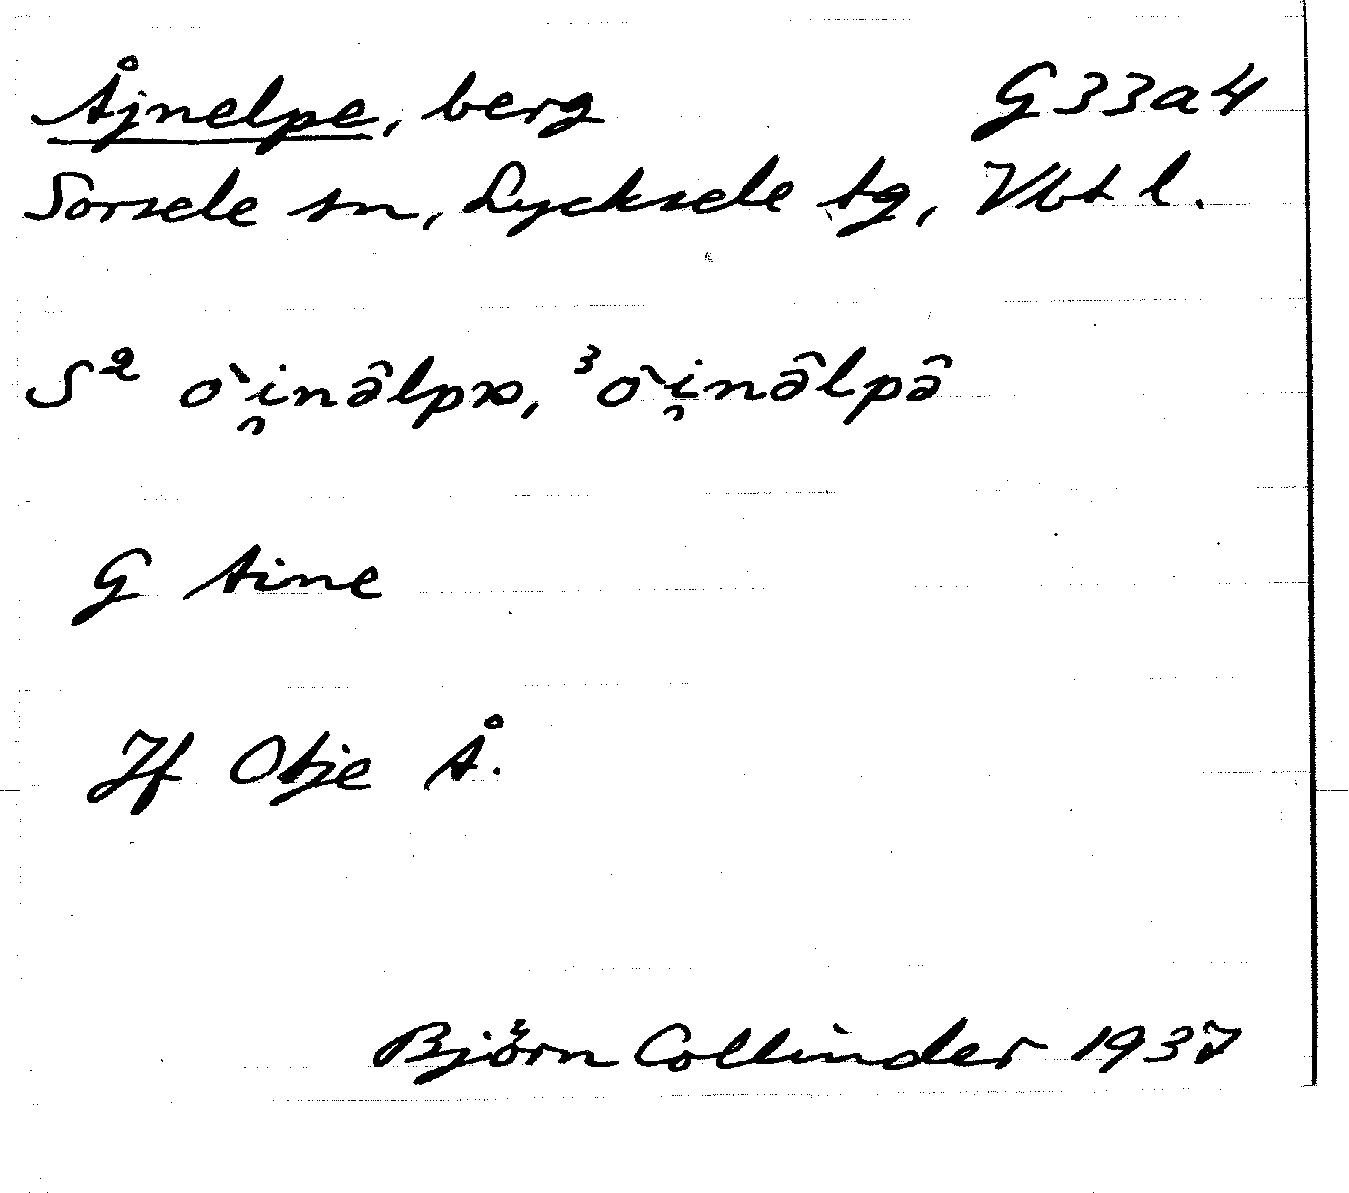 Åjnelpe, berg G33a4
Sorsele sn, Lycksele tg, Vbt l.
S² ò̀i̯nâlpᴔ, ³ò̀i̯nâlpâ
G Aine
Jf Otje Å.
Björn Collinder 1937